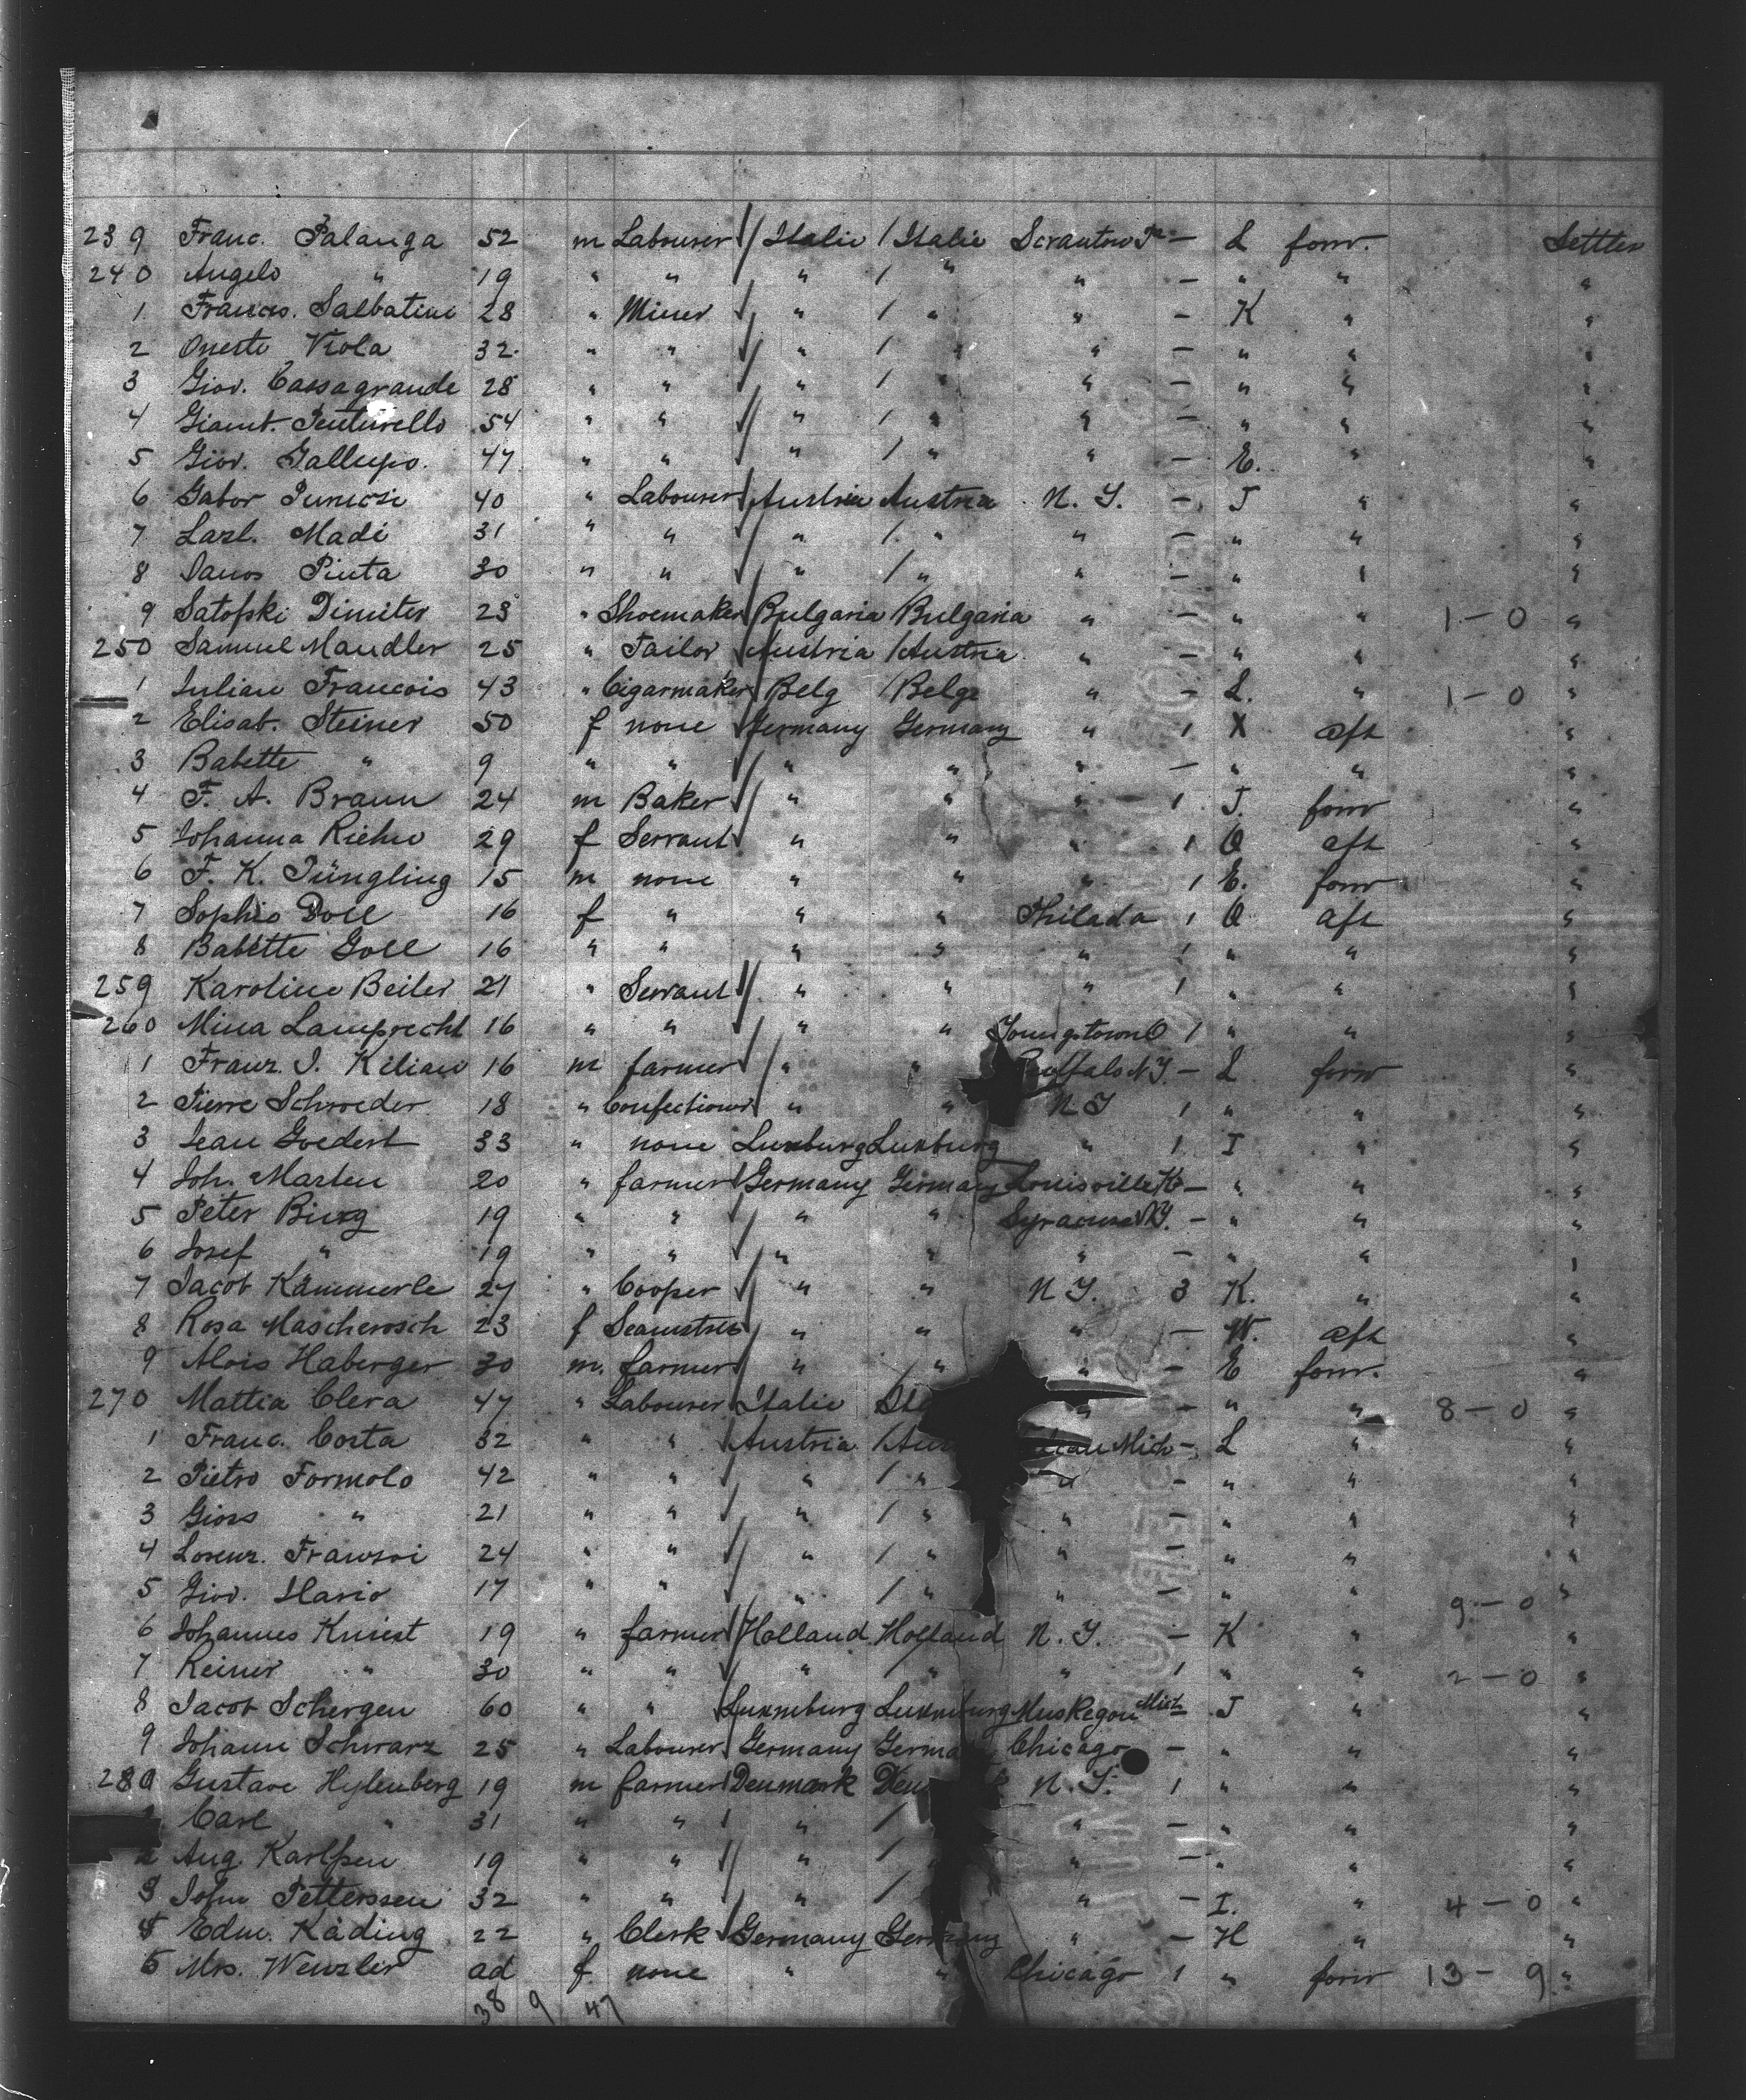 239 Franc. Palanga 52 m Labourer Italie / Italie Scranton Pa - L forw. Settler
240 Angelo " 19 " " " / " " - " " "
1 Francs. Salbatini 28 " Miner " / " " - K " "
2 Oneste Viola 32 " " " / " " - " " "
3 Giov. Cassagrande 28 " " " / " " - " " "
4 Giamb. Penturello 54 " " " / " " - " " "
5 Giov. Gallupo. 47 " " " / " " - E. " "
6 Gabor 40 " Labourer Austria Austria N. Y. - J " "
7 Lazl. Madi 31 " " " / " " - " " "
8 Janos Pinta 30 " " " / " " - " " "
9 Satofski Dimiter 23 " Shoemaker Bulgaria / Bulgaria " - " " 1-0 "
250 Samuel Mandler 25 " Tailor Austria / Austria " - " " "
1 Julian Francois 43 " Cigarmaker Belg / Belge " - L. " 1-0 "
2 Elisab. Steiner 50 f none Germany Germany " 1 X aft "
3 Babette " 9 " " " " " - " " "
4 F. A. Braun 24 m Baker " " " 1 J. forw "
5 Johanna Riehn 29 f Servant " " " 1 O aft "
6 F. K. Jüngling 15 m none " " " 1 E. forw "
7 Sophie Doll 16 f " " " Philada 1 O aft "
8 Babette Goll 16 " " " " " 1 " " "
259 Karoline Beiler 21 " Servant " " " 1 " " "
260 Mina Lamprecht 16 " " " " Youngstown O 1 " " "
1 Franz. J. Kilian 16 m farmer " " Buffalo N.Y. - L forw "
2 Pierre Schroeder 18 " Confectioner " " N Y 1 " " "
3 Jean Goedert 33 " none Luxburg Luxburg " 1 I " "
4 Joh. Marten 20 " farmer Germany Germany Louisville Ky - " " "
5 Peter Burg 19 " " " " Syracuse N.Y. - " " "
6 Josef " 19 " " " " " - " " "
7 Jacob Kämmerle 27 " Cooper " " N Y. 3 K. " "
8 Rosa Mascherosch 23 f Seamstress " " " - W. aft "
9 Alois Haberger 30 m. farmer " / " " - E forw. "
270 Mattia Clera 47 " Labourer Italie " - " " 8-0 "
1 Franc. Costa 32 " " Austria / Mich - L " "
2 Pietro Formolo 42 " " " / " " - " " "
3 Gioss " 21 " " " / " " - " " "
4 Lorenz. 24 " " " / " " - " " "
5 Giov. Ilario 17 " " " / " " - " " 9-0 "
6 Johannes Kniest 19 " farmer Holland Holland N. Y. - K " "
7 Reiner " 30 " " " / " " 1 " " 2-0 "
8 Jacob Schergen 60 " " Luxemburg Luxemburg Muskegon Mich - J " "
9 Johann Schwarz 25 " Labourer Germany Germany Chicago - " " "
280 Gustave Hylenberg 19 m farmer Denmark N. Y. 1 " " "
Carl " 31 " " " / " - " " "
2 Aug. Karlssen 19 " " " / " - " " "
3 John Petterssen 32 " " " / " - I. " 4-0 "
4 Edm. Käding 22 " Clerk Germany Germany " - H " "
5 Mrs. Wenzler ad f none " " Chicago 1 " forw 13-9 "
38 9 47